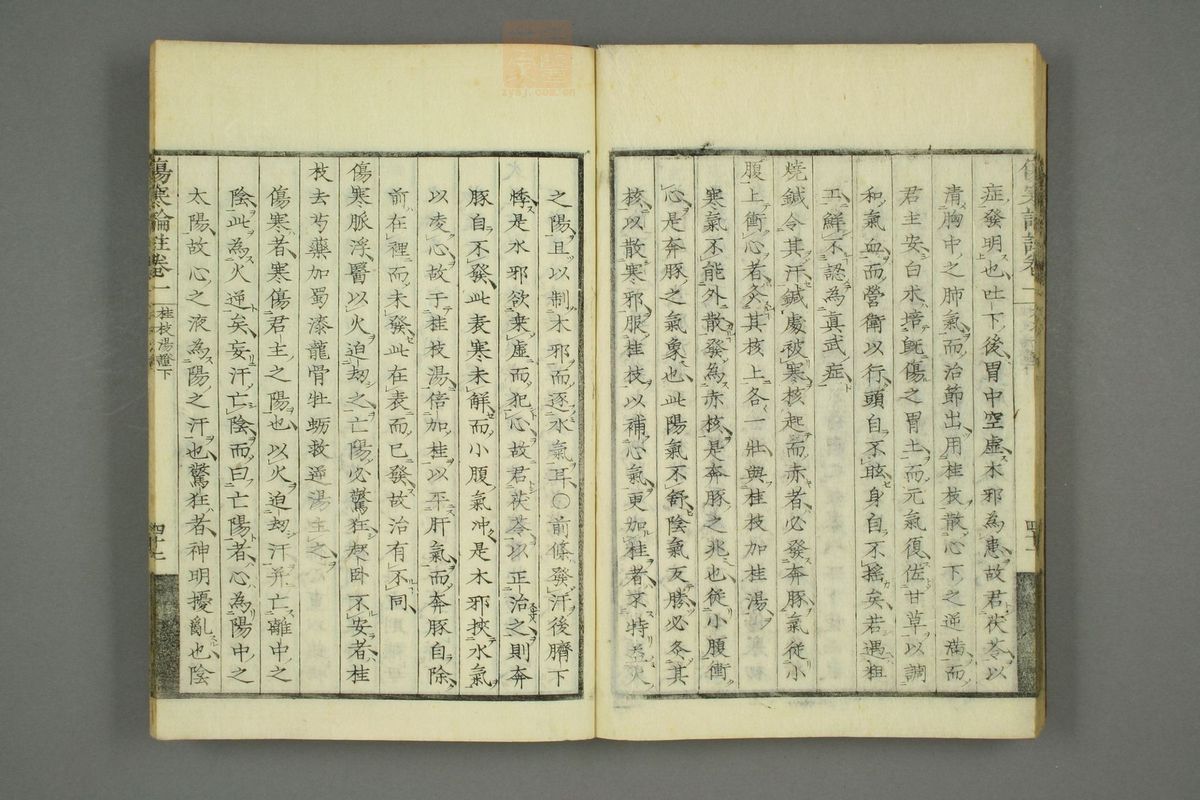 症發明也吐下後胃中空虛木邪為患故君茯苓以
清胸中之肺氣而治節出用桂枝散心下之逆滿而
君主安白朮培既傷之胃土而元氣復佐甘草以調
和氣血而營衛以行頭自不眩身自不搖矣若遇粗
工鮮不認為真武症
燒鍼令其汗鍼處被寒核起而赤者必發奔豚氣從小
腹上衝心者灸其核上各一壯與桂枝加桂湯
寒氣不能外散發為赤核是奔豚之兆也從小腹衝
心是奔豚之氣象也此陽氣不舒陰氣反勝必灸其
核以散寒邪服桂枝以補心氣更加桂者不特益火
之陽且以制木邪而逐水氣耳○前條發汗後臍下
悸是水邪欲乘虛而犯心故君茯苓以正治之則奔
豚自不發此表寒未解而小腹氣冲是木邪挾水氣
以凌心故于桂枝湯倍加桂以平肝氣而奔豚自除
前在裡而未發此在表而已發故治有不同
傷寒脈浮醫以火迫刧之亡陽必驚狂起卧不安者桂
枝去芍藥加蜀漆龍骨牡蛎救逆湯主之
傷寒者寒傷君主之陽也以火迫刧汗并亡離中之
陰此為火逆矣妄汗亡陰而曰亡陽者心為陽中之
太陽故心之液為陽之汗也驚狂者神明擾亂也陰
傷寒論註卷一
桂枝湯證下
zysj.com.cn